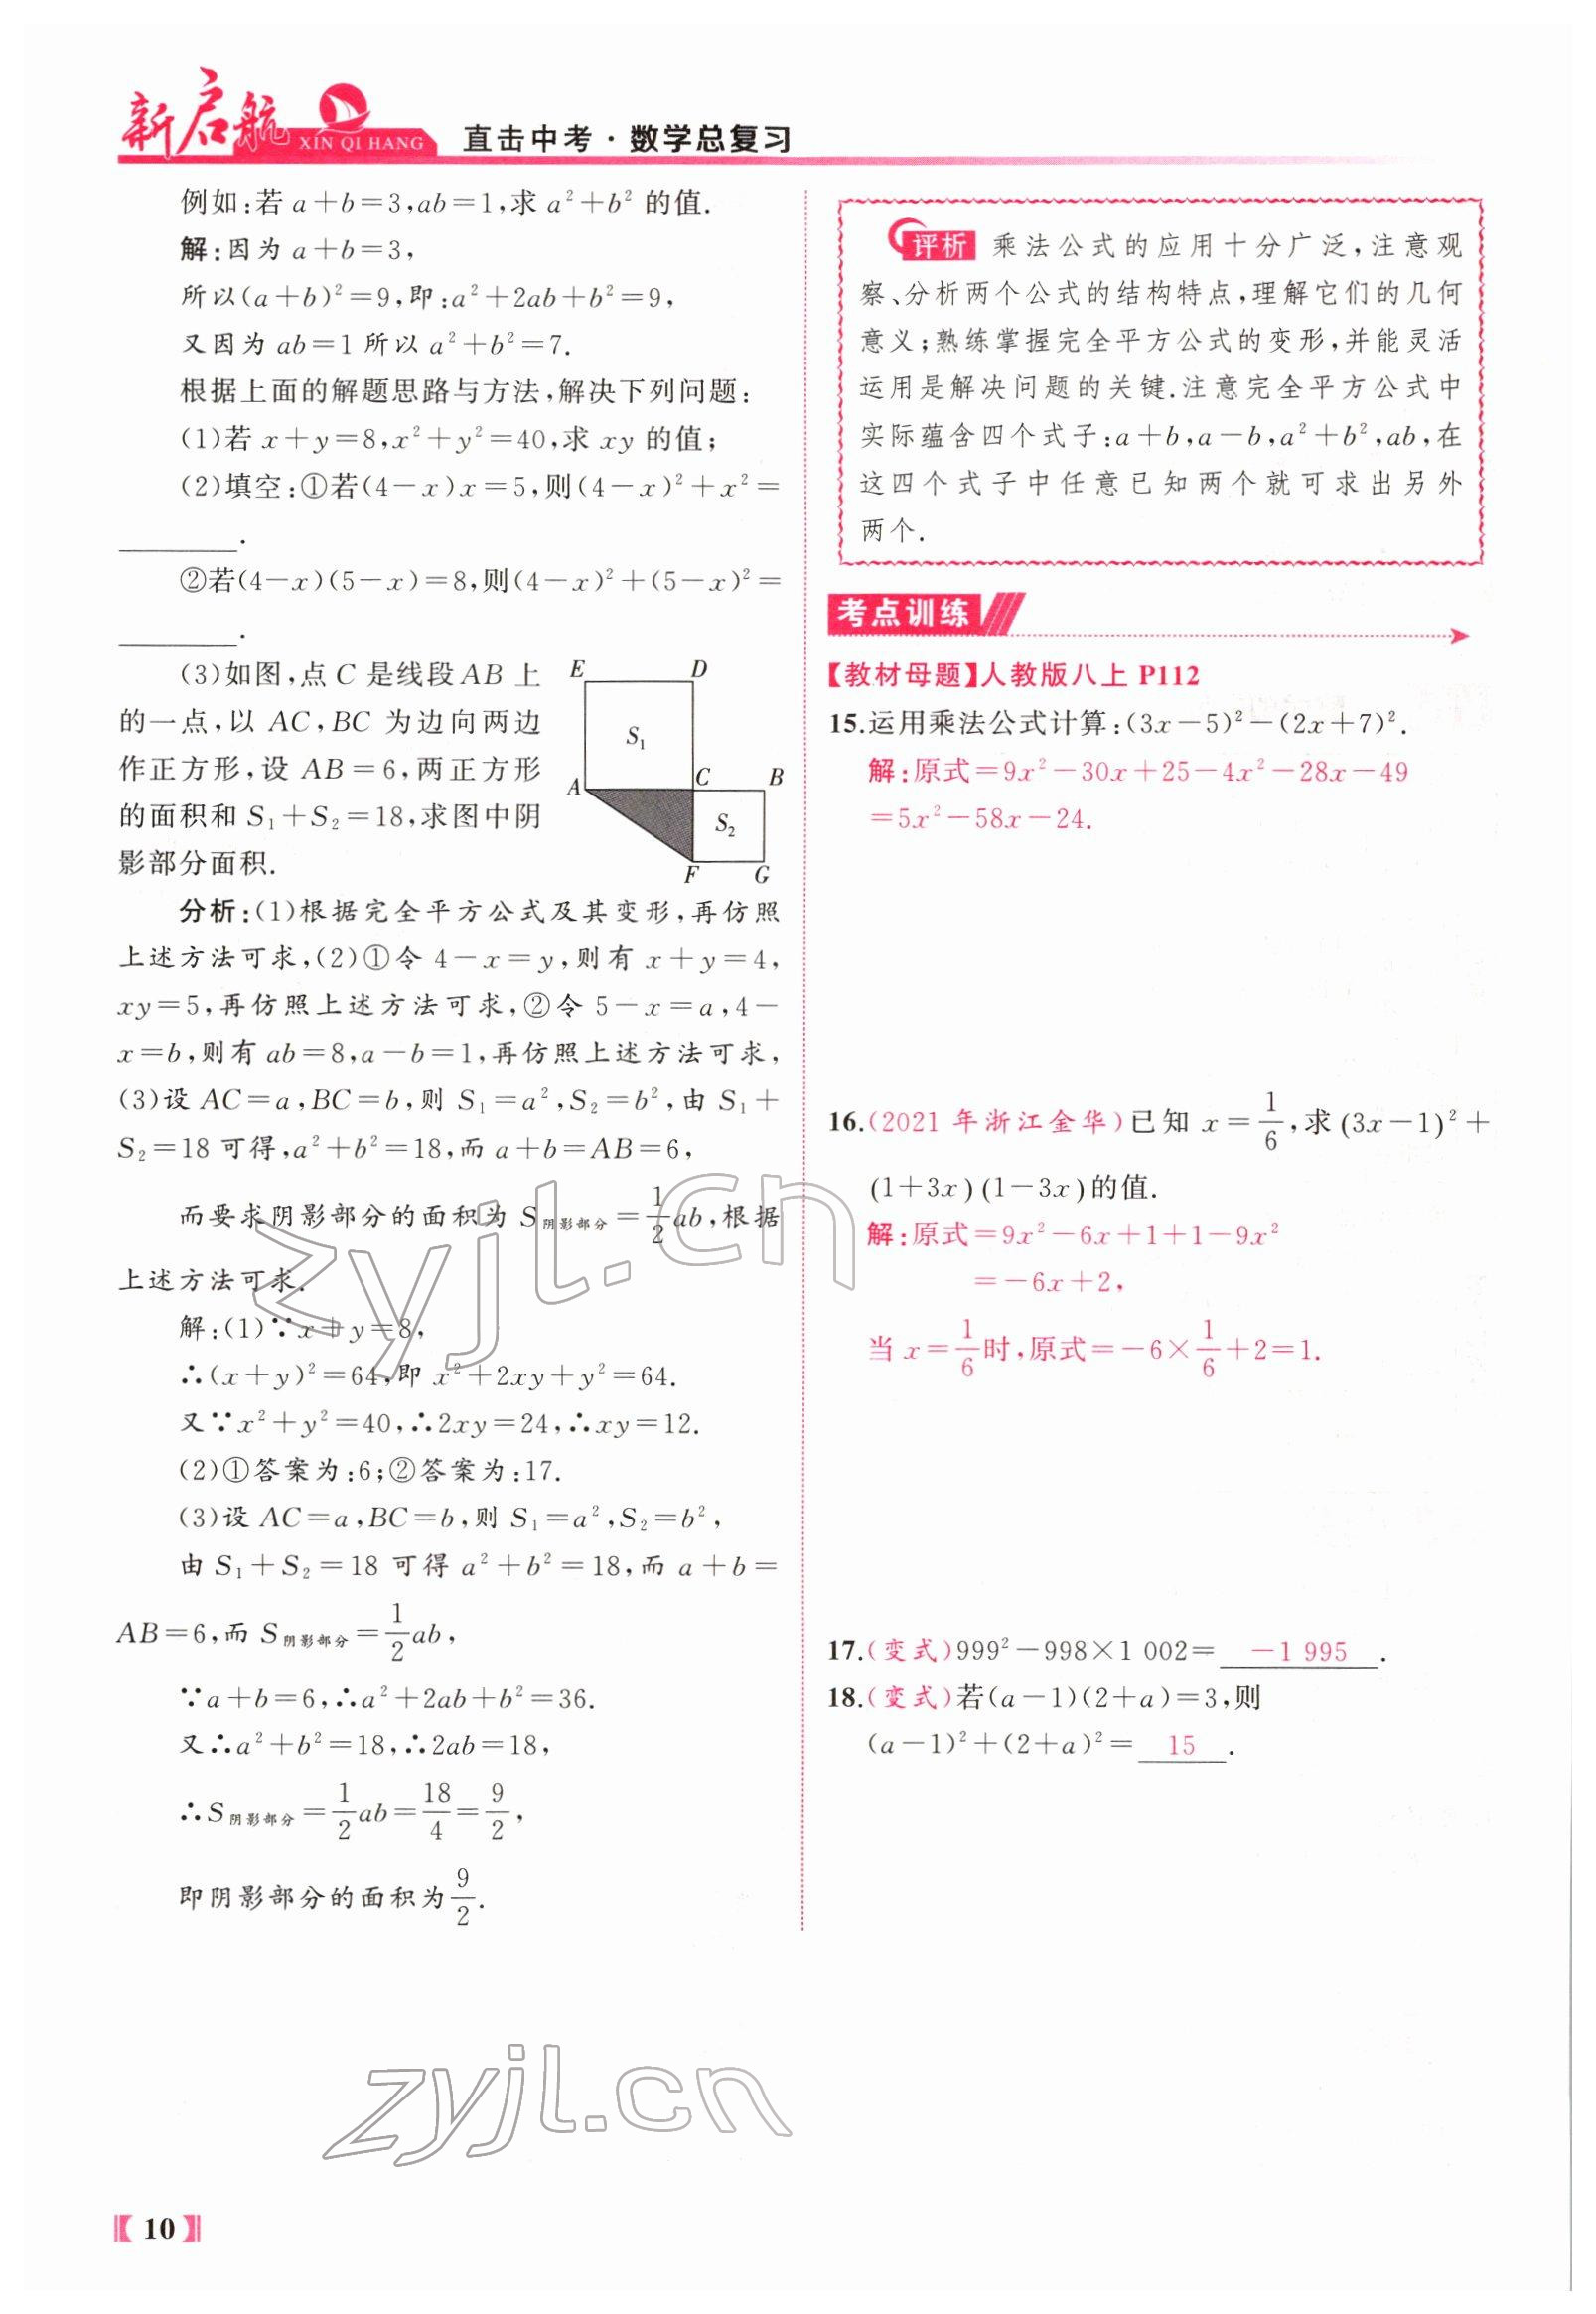 新启航
XIN QI HANG
直击中考·数学总复习
例如:若 a+b=3,ab=1,求 a²+b² 的值.
解:因为 a+b=3,
所以(a+b)²=9,即:a²+2ab+b²=9,
又因为 ab=1 所以 a²+b²=7.
根据上面的解题思路与方法,解决下列问题:
(1)若 x+y=8,x²+y²=40,求 xy 的值;
(2)填空:①若(4-x)x=5,则(4-x)²+x²=
________.
②若(4-x)(5-x)=8,则(4-x)²+(5-x)²=
________.
(3)如图,点 C 是线段 AB 上
的一点,以 AC,BC 为边向两边
作正方形,设 AB=6,两正方形
的面积和 S₁+S₂=18,求图中阴
影部分面积.
E D
S₁
A C B
S₂
F G
分析:(1)根据完全平方公式及其变形,再仿照
上述方法可求,(2)①令 4-x=y,则有 x+y=4,
xy=5,再仿照上述方法可求,②令 5-x=a,4-
x=b,则有 ab=8,a-b=1,再仿照上述方法可求,
(3)设 AC=a,BC=b,则 S₁=a²,S₂=b²,由 S₁+
S₂=18 可得,a²+b²=18,而 a+b=AB=6,
而要求阴影部分的面积为 S阴影部分=1/2ab,根据
上述方法可求.
解:(1)∵x+y=8,
∴(x+y)²=64,即 x²+2xy+y²=64.
又∵x²+y²=40,∴2xy=24,∴xy=12.
(2)①答案为:6;②答案为:17.
(3)设 AC=a,BC=b,则 S₁=a²,S₂=b²,
由 S₁+S₂=18 可得 a²+b²=18,而 a+b=
AB=6,而 S阴影部分=1/2ab,
∵a+b=6,∴a²+2ab+b²=36.
又∴a²+b²=18,∴2ab=18,
∴S阴影部分=1/2ab=18/4=9/2,
即阴影部分的面积为9/2.
评析 乘法公式的应用十分广泛,注意观
察、分析两个公式的结构特点,理解它们的几何
意义;熟练掌握完全平方公式的变形,并能灵活
运用是解决问题的关键.注意完全平方公式中
实际蕴含四个式子:a+b,a-b,a²+b²,ab,在
这四个式子中任意已知两个就可求出另外
两个.
考点训练
【教材母题】人教版八上 P112
15.运用乘法公式计算:(3x-5)²-(2x+7)².
解:原式=9x²-30x+25-4x²-28x-49
=5x²-58x-24.
16.(2021 年浙江金华)已知 x=1/6,求(3x-1)²+
(1+3x)(1-3x)的值.
解:原式=9x²-6x+1+1-9x²
=-6x+2,
当 x=1/6时,原式=-6×1/6+2=1.
17.(变式)999²-998×1 002= -1 995 .
18.(变式)若(a-1)(2+a)=3,则
(a-1)²+(2+a)²= 15 .
zyjl.cn
zyjl.cn
【10】